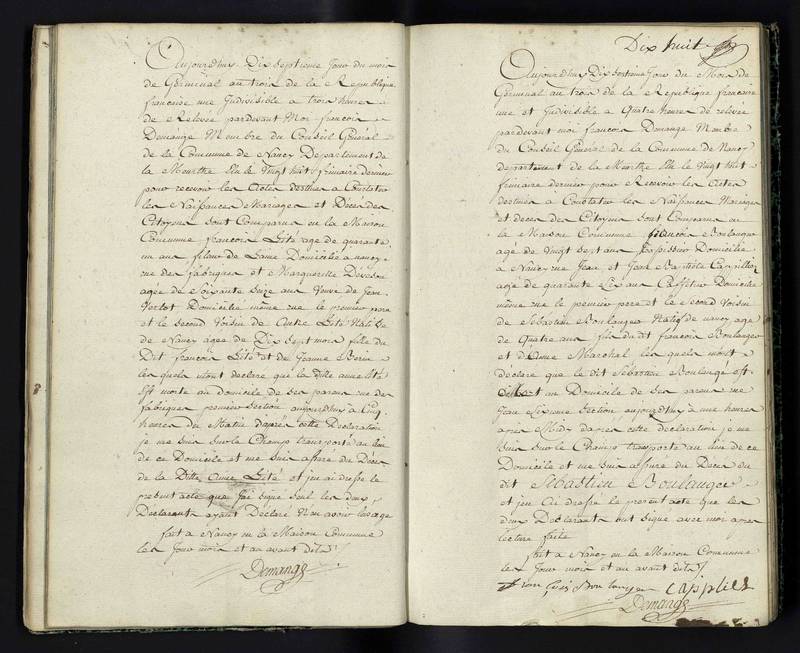 Aujourdhuy Dix Septieme Jour du mois
de Germinal an trois de la Republique
francoise une Indivisible a trois heures
de Relevée pardevant Moi francois
Demange Membre du Conseil General
de la Commune de Nancy Departement de
la Meurthe Elu le Vingt huit frimaire dernier
pour recevoir les Actes destines a Constater
les Naissances Mariages et Décès des
Citoyens sont Comparus en la Maison
Commune francois Lité age de quarante
un ans fileur de Laine Domicilié a nancy
rue des fabriques et Marguerite
agée de Soixante Seize ans Veuve de Jean
Domicilié même rue le premier pere
et le second Voisine de Anne Lité Native
de Nancy agée de Dix Sept mois fille du
Dit francois Lité et de Jeanne
les quels m'ont declaré que la Ditte anne lité
Est morte au Domicile de ses parens rue des
fabriques premiere Section aujourdhuy a Cinq
heures du Matin d'après cette Declaration
je me suis sur le Champ transporté au lieu
de ce Domicile et me suis assuré du Décès
de la Ditte Anne Lité et j'en ai dressé le
present acte que J'ai signé seul les deux
Declarants ayant Déclaré N'en avoir l'usage
fait a Nancy en la Maison Commune
les Jour mois et an avant dits
Demange
Dix huit
Aujourdhuy Dix Septieme Jour du Mois de
Germinal an trois de la Republique francaise
une et Indivisible a Quatre heures de relevée
pardevant moi francois Demange Membre
du Conseil General de la Commune de Nancy
departement de la Meurthe Elu le Vingt huit
frimaire dernier pour Recevoir les Actes
destinés a Constater les Naissances Mariages
et deces des Citoyens sont Comparus en
la Maison Commune francois Boulanger
agé de Vingt sept ans Domicilié
a Nancy rue Jean et Jean Baptiste Capillier
agé de quarante Six ans Caffetier Domicilié
même rue le premier pere et le Second Voisin
de Sebastien Boulanger Natif de nancy age
de Quatre ans fils du dit francois Boulanger
et d'Anne Marchal les quels m'ont
déclaré que le dit Sebastien Boulanger est
Mort au Domicile de ses parens rue
Jean Sixieme Section aujourdhuy a une heure
apres Midy d'apres cette declaration je me
suis sur le Champ transporté au lieu de ce
Domicile et me suis assuré du Deces du
dit Sébastien Boulanger
et j'en Ai dressé le present acte que les
deux Declarants ont signé avec moi apres
lecture faite
fait a Nancy en la Maison Commune
les Jour mois et an avant dits
francois Boulanger Capillier
Demange